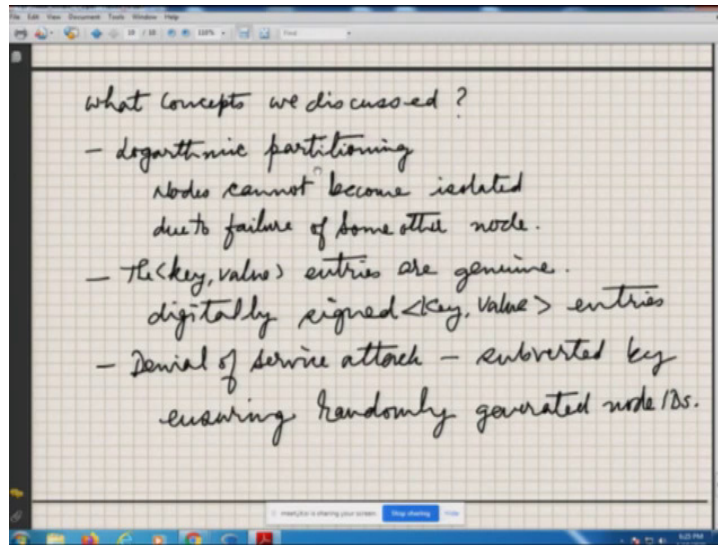 File Edit View Document Tools Window Help
18 / 18 118% Find
What concepts we discussed ?
- Logarthmic partitioning
Nodes cannot become isolated
due to failure of some other node.
- The <key, value> entries are genuine.
digitally signed <key, value> entries
- Denial of service attack - subverted by
ensuring randomly generated node IDs.
is sharing your screen Stop sharing Hide
5:25 PM